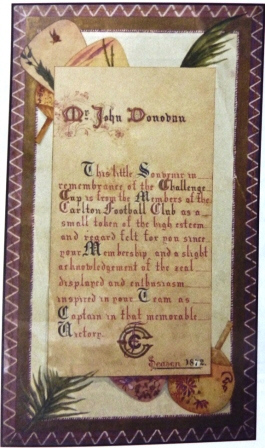 Mr. John Donovan
This little Souvenir in
remembrance of the Challenge
Cup is from the Members of the
Carlton Football Club as a
small token of the high esteem
and regard felt for you since
your Membership and a slight
acknowledgement of the zeal
displayed and enthusiasm
inspired in your Team as
Captain in that memorable
Victory.
CFC
Season 1872.